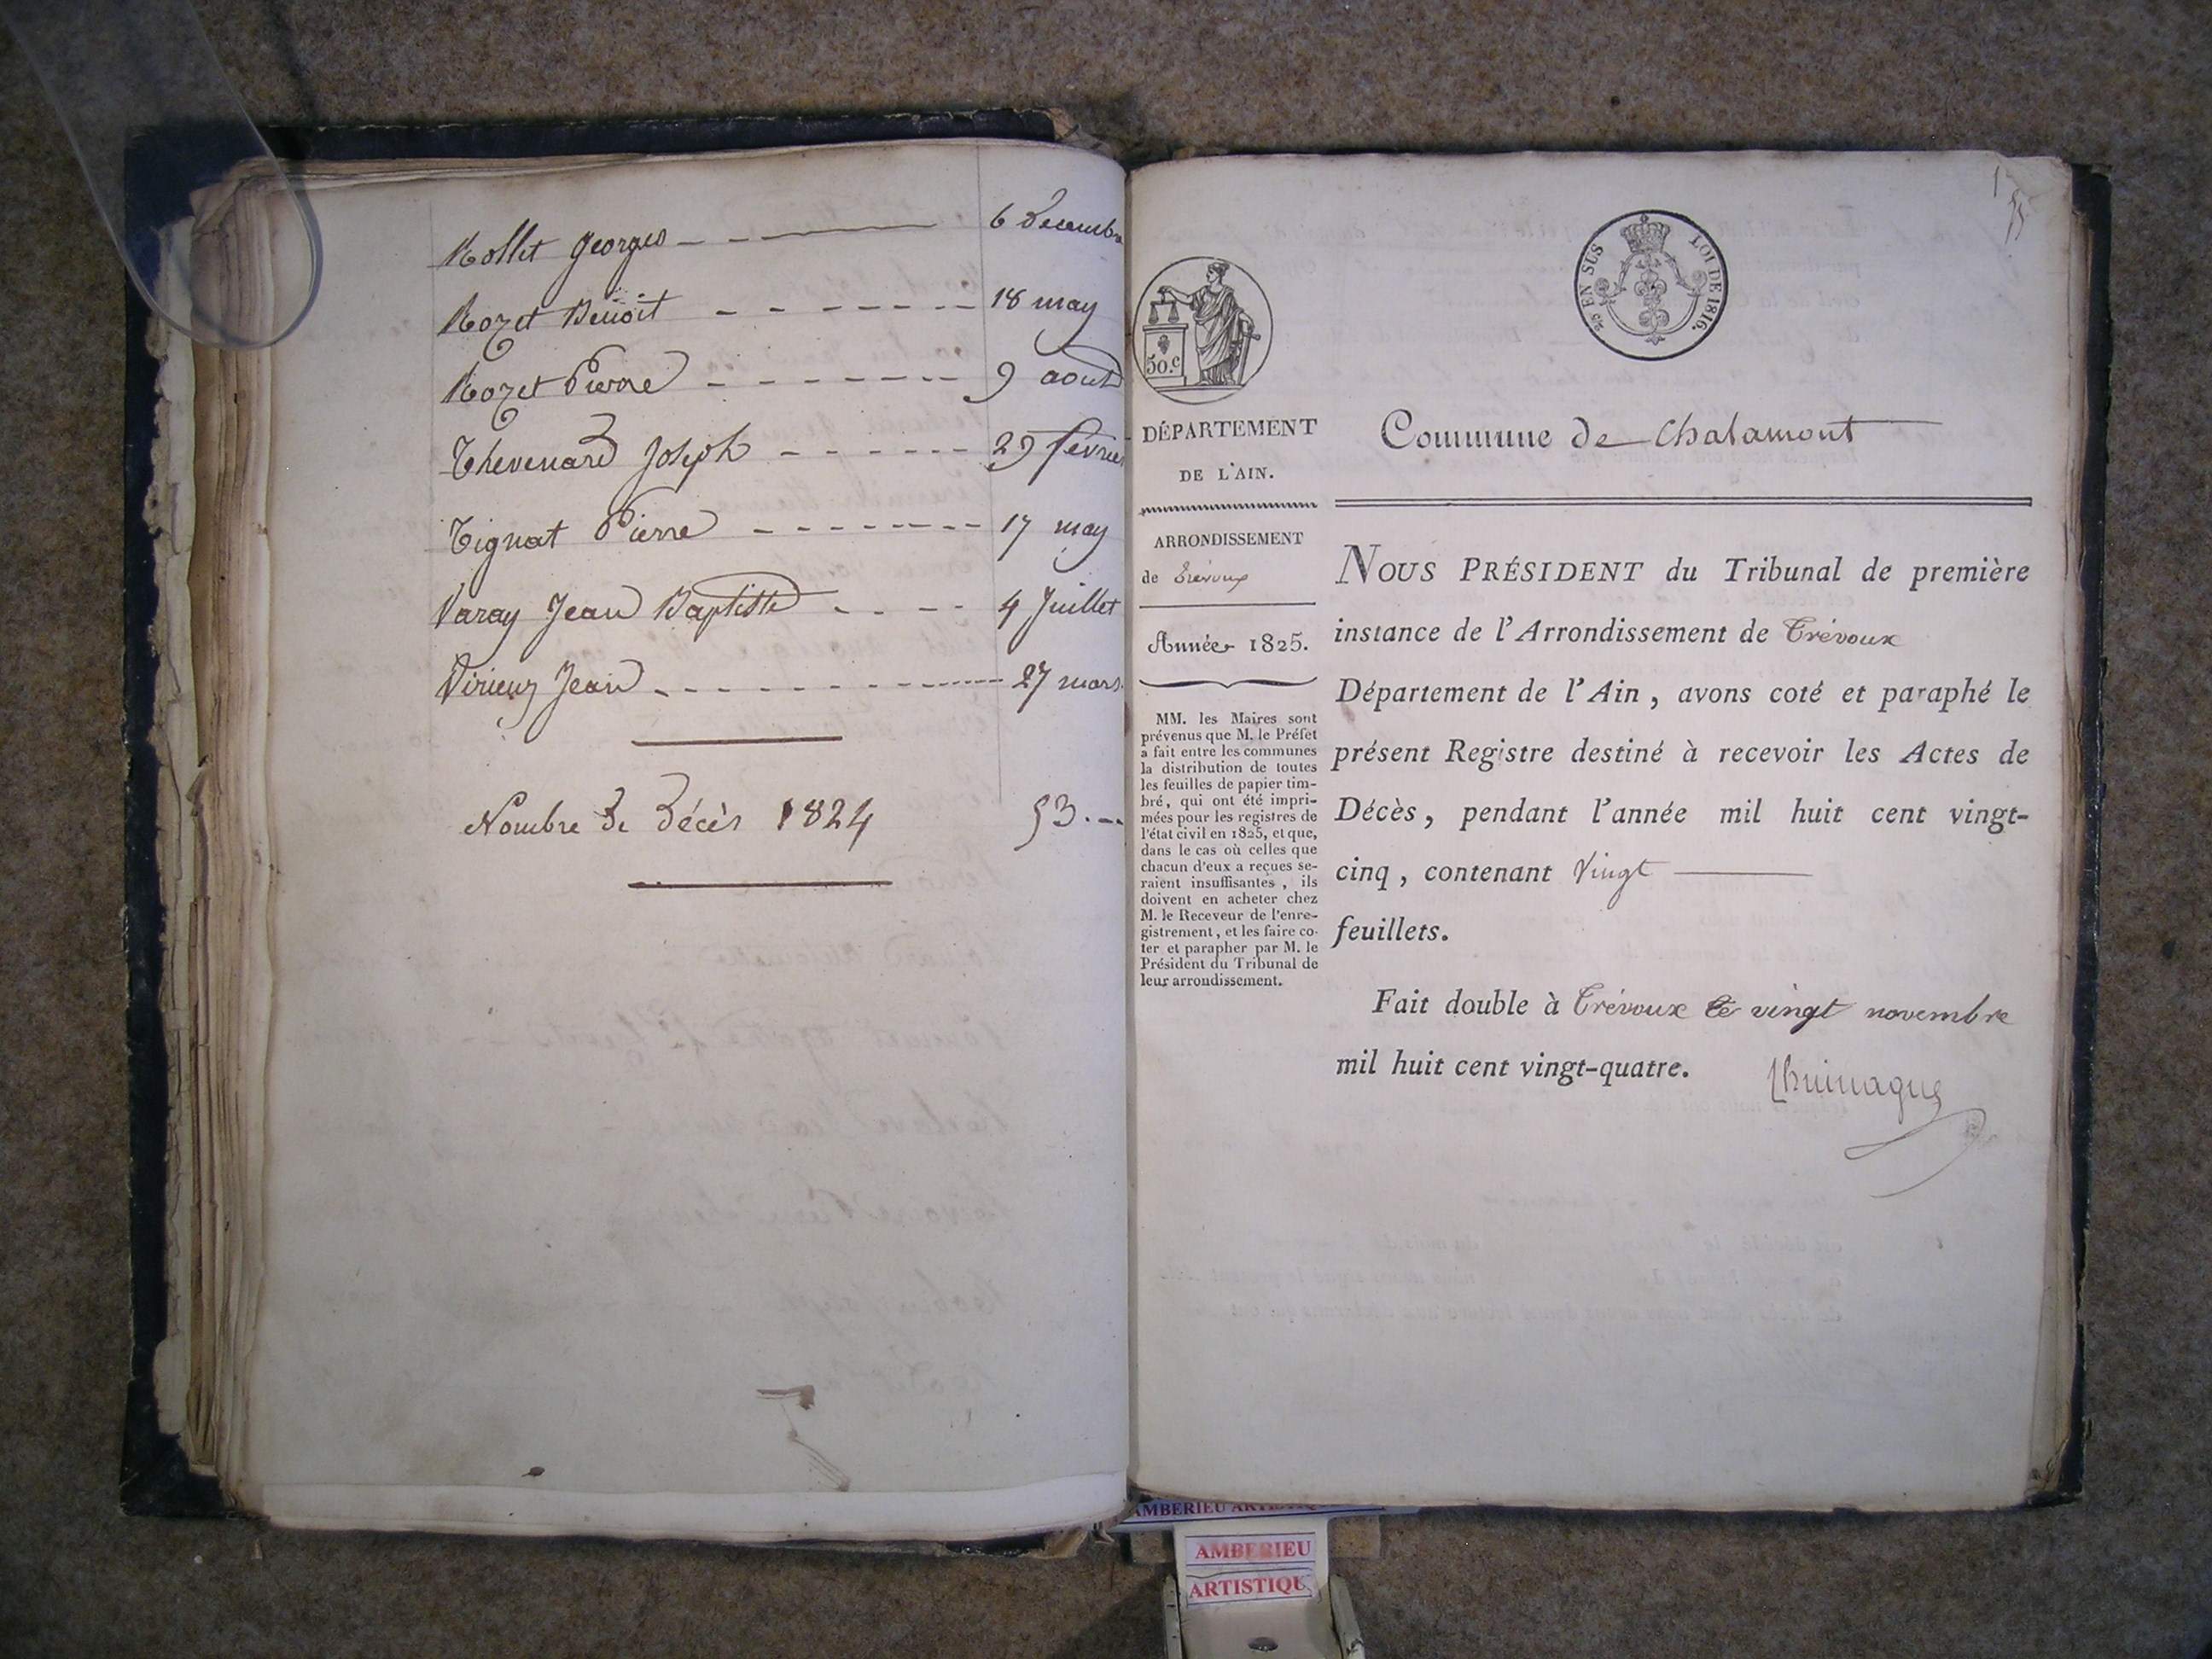 Rollet Georges 6 Decembre
Rozet Benoit 18 may
Rozet Pierre 9 aout
Thevenard Joseph 29 fevrier
Tignat Pierre 17 may
Varay Jean Baptiste 4 Juillet
Virieux Jean 27 mars
Nombre de Décès 1824 53
25 EN SUS LOI DE 1816.
50.c
DÉPARTEMENT
DE L'AIN.
ARRONDISSEMENT
de Trévoux
Année 1825.
MM. les Maires sont
prévenus que M. le Préfet
a fait entre les communes
la distribution de toutes
les feuilles de papier tim-
bré, qui ont été impri-
mées pour les registres de
l'état civil en 1825, et que,
dans le cas où celles que
chacun d'eux a reçues se-
raient insuffisantes, ils
doivent en acheter chez
M. le Receveur de l'enre-
gistrement, et les faire co-
ter et parapher par M. le
Président du Tribunal de
leur arrondissement.
Commune de Chalamont
NOUS PRÉSIDENT du Tribunal de première
instance de l'Arrondissement de Trévoux
Département de l'Ain, avons coté et paraphé le
présent Registre destiné à recevoir les Actes de
Décès, pendant l'année mil huit cent vingt-
cinq, contenant Vingt
feuillets.
Fait double à Trévoux le vingt novembre
mil huit cent vingt-quatre.
AMBERIEU
AMBERIEU
ARTISTIQU